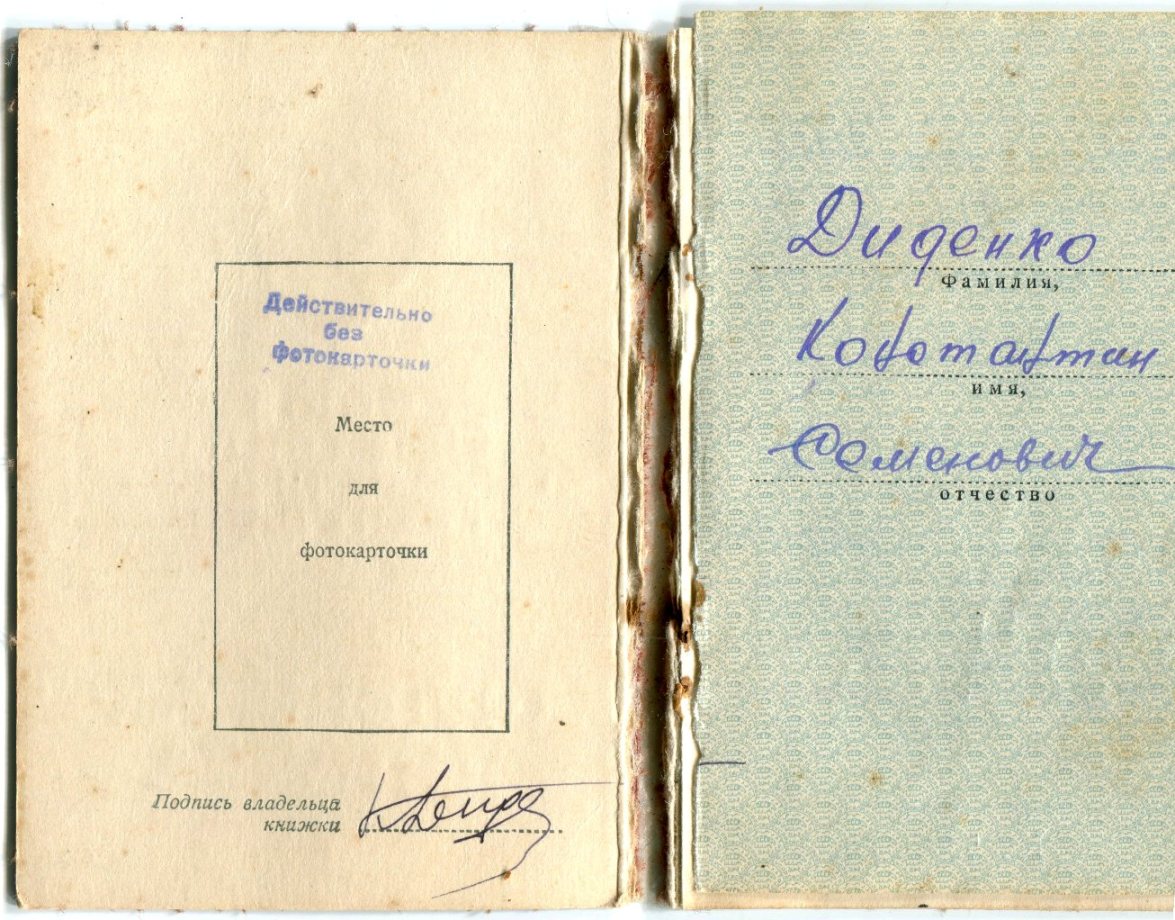 Действительно
без
фотокарточки
Место
для
фотокарточки
Подпись владельца
книжки
Диденко
Фамилия,
Константин
имя,
Семенович
отчество